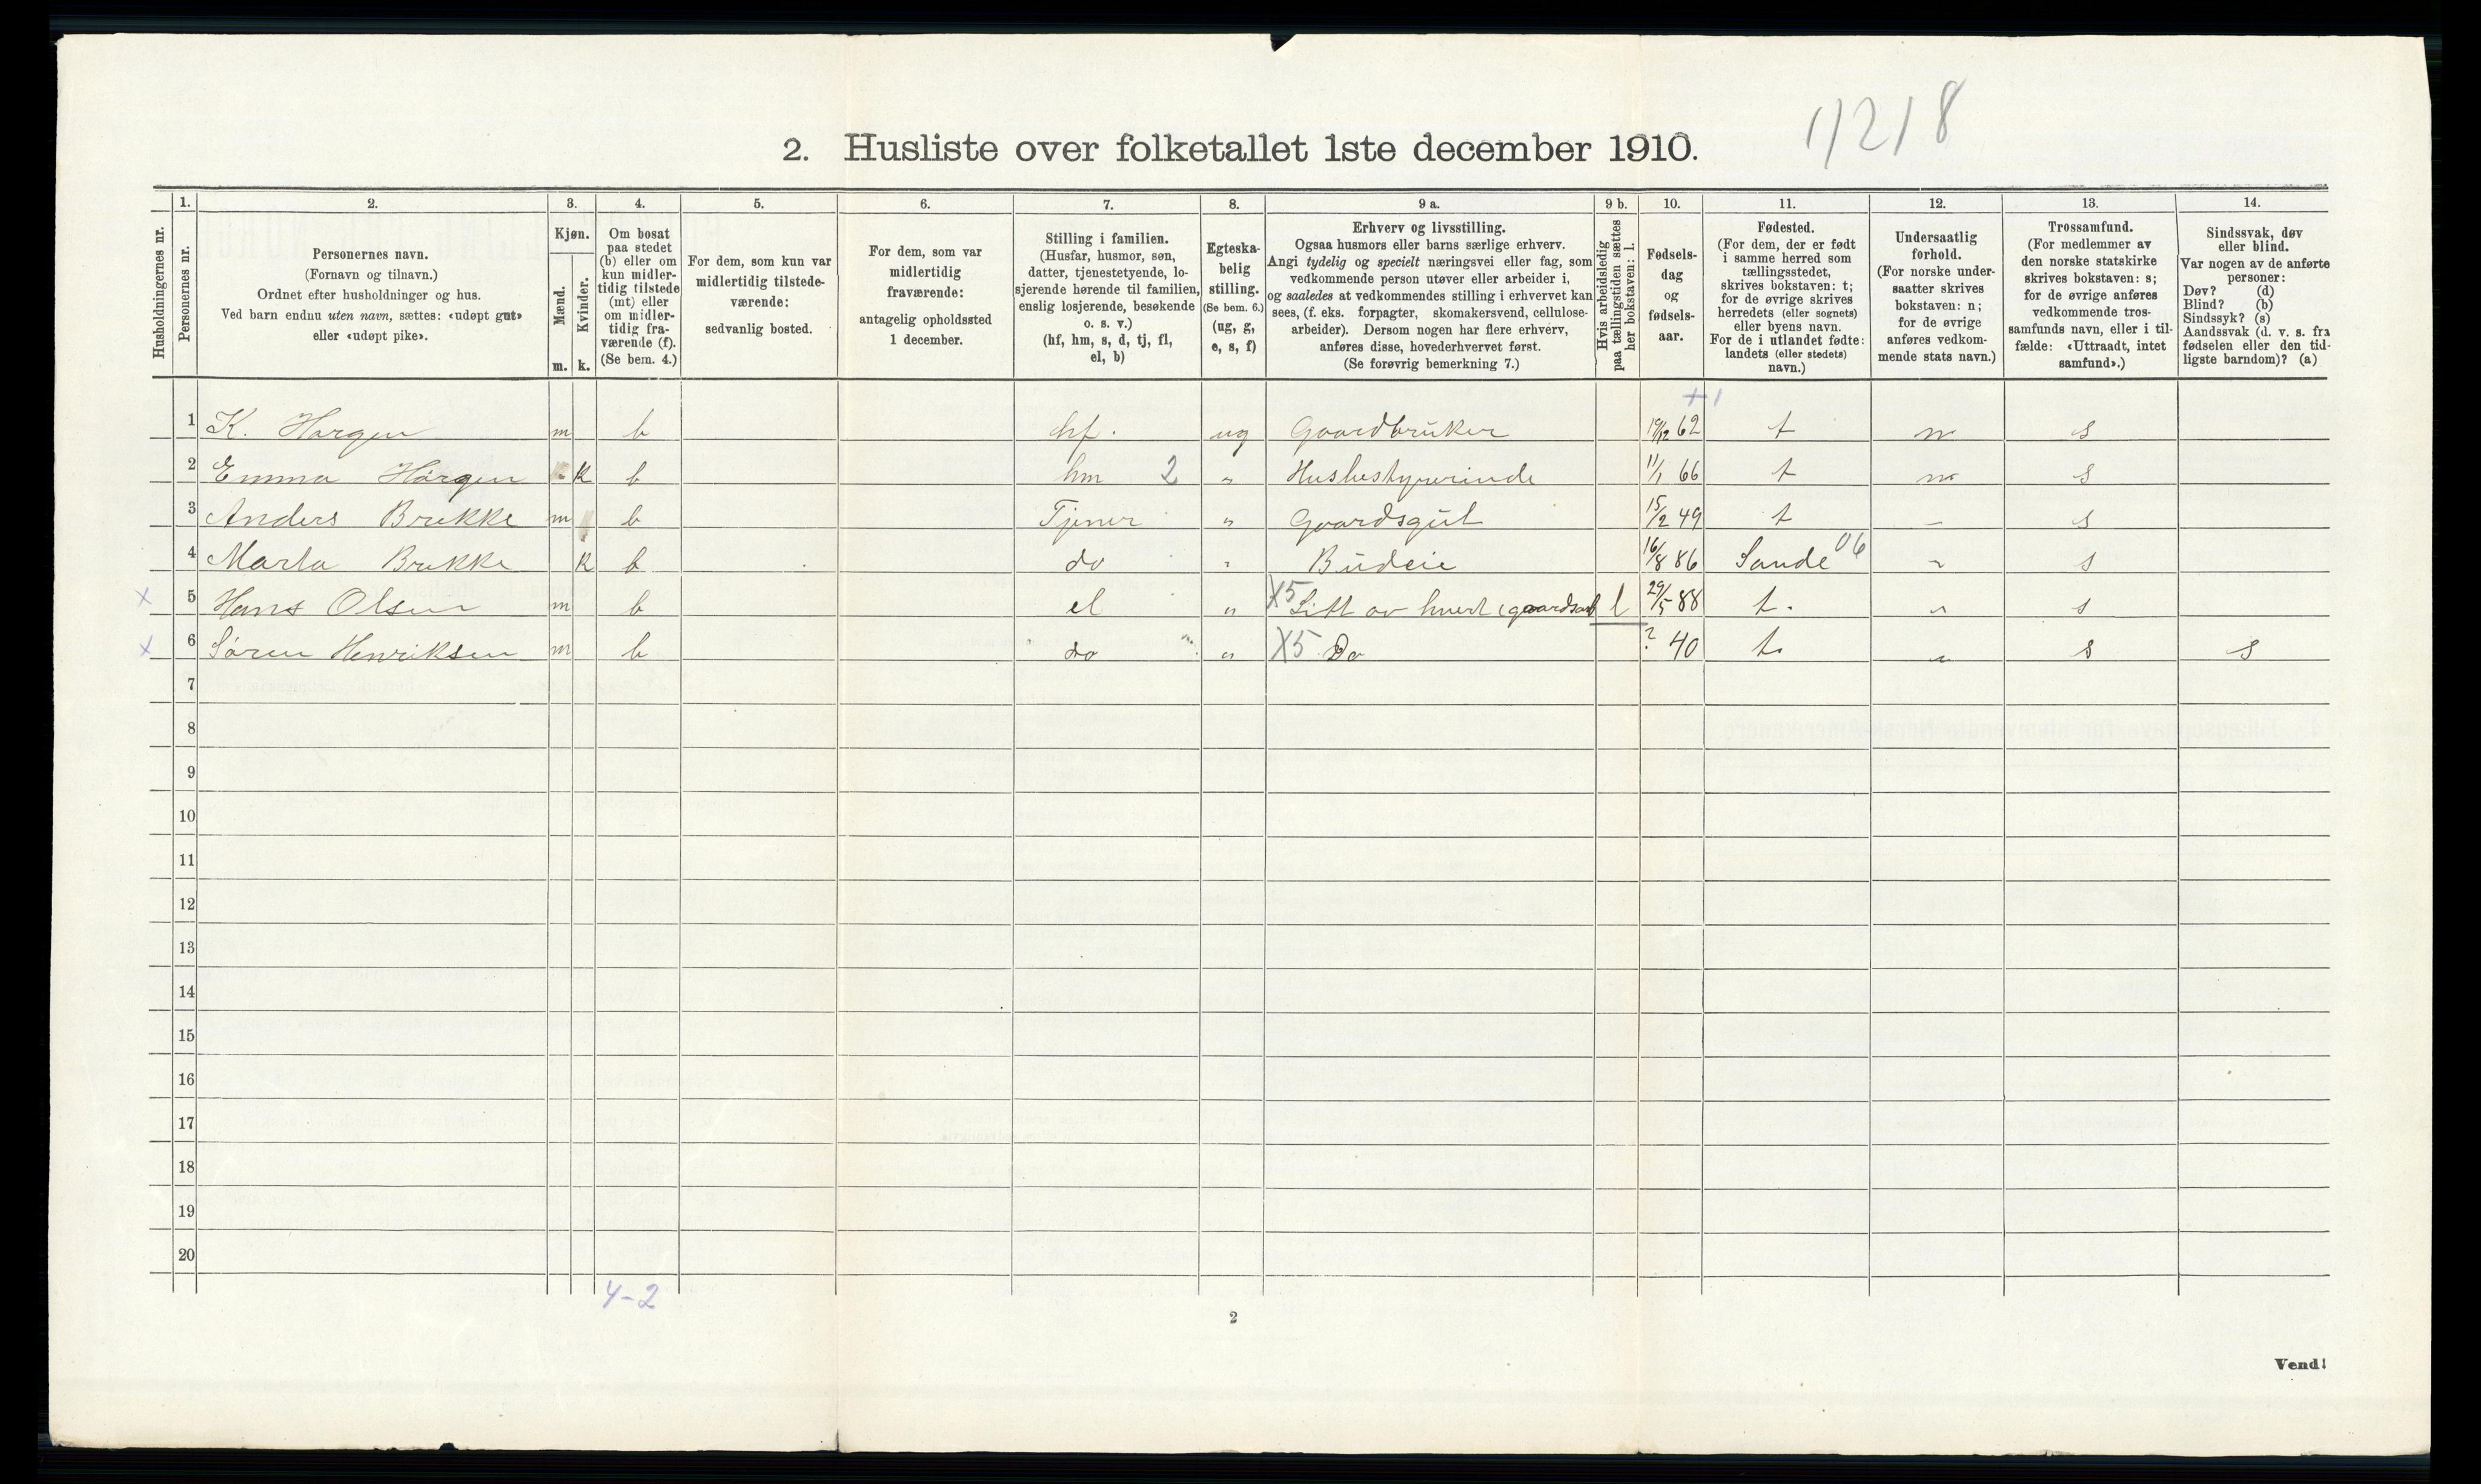 1/2/8
2. Husliste over folketallet 1ste december 1910.
Husholdningernes nr.
1.
Personernes nr.
2.
Personernes navn.
(Fornavn og tilnavn.)
Ordnet efter husholdninger og hus.
Ved barn endnu uten navn, sættes: «udøpt gut»
eller «udøpt pike».
3.
Kjøn.
Mænd.
Kvinder.
m. k.
4.
Om bosat
paa stedet
(b) eller om
kun midler-
tidig tilstede
(mt) eller
om midler-
tidig fra-
værende (f).
(Se bem. 4.)
5.
For dem, som kun var
midlertidig tilstede-
værende:
sedvanlig bosted.
6.
For dem, som var
midlertidig
fraværende:
antagelig opholdssted
1 december.
7.
Stilling i familien.
(Husfar, husmor, søn,
datter, tjenestetyende, lo-
sjerende hørende til familien,
enslig losjerende, besøkende
o. s. v.)
(hf, hm, s, d, tj, fl,
el, b)
8.
Egteska-
belig
stilling.
(Se bem. 6.)
(ug, g,
e, s, f)
9 a.
Erhverv og livsstilling.
Ogsaa husmors eller barns særlige erhverv.
Angi tydelig og specielt næringsvei eller fag, som
vedkommende person utøver eller arbeider i,
og saaledes at vedkommendes stilling i erhvervet kan
sees, (f. eks. forpagter, skomakersvend, cellulose-
arbeider). Dersom nogen har flere erhverv,
anføres disse, hovederhvervet først.
(Se forøvrig bemerkning 7.)
9 b.
Hvis arbeidsledig
paa tællingstiden sættes
her bokstaven: l.
10.
Fødsels-
dag
og
fødsels-
aar.
11.
Fødested.
(For dem, der er født
i samme herred som
tællingsstedet,
skrives bokstaven: t;
for de øvrige skrives
herredets (eller sognets)
eller byens navn.
For de i utlandet fødte:
landets (eller stedets)
navn.)
12.
Undersaatlig
forhold.
(For norske under-
saatter skrives
bokstaven: n;
for de øvrige
anføres vedkom-
mende stats navn.)
13.
Trossamfund.
(For medlemmer av
den norske statskirke
skrives bokstaven: s;
for de øvrige anføres
vedkommende tros-
samfunds navn, eller i til-
fælde: «Uttraadt, intet
samfund».)
14.
Sindssvak, døv
eller blind.
Var nogen av de anførte
personer:
Døv? (d)
Blind? (b)
Sindssyk? (s)
Aandssvak (d. v. s. fra
fødselen eller den tid-
ligste barndom)? (a)
+1
1 K. Horgen m b hf. ug Gaardbruker 19/12 62 t n s
2 Emma Horgen k b hm 2 " Husbestyrerinde 11/1 66 t n s
3 Anders Brekke m b Tjener " Gaardsgut 15/2 49 t - s
4 Marta Brekke k b do " Budeie 16/8 86 Sande 06 " s
x 5 Hans Olsen m b el " X5 Litt av hvert (gaardsarb l 29/5 88 t. " s
x 6 Søren Henriksen m b do " X5 Do ? 40 t. " s s
7
8
9
10
11
12
13
14
15
16
17
18
19
20
4-2
2
Vend!